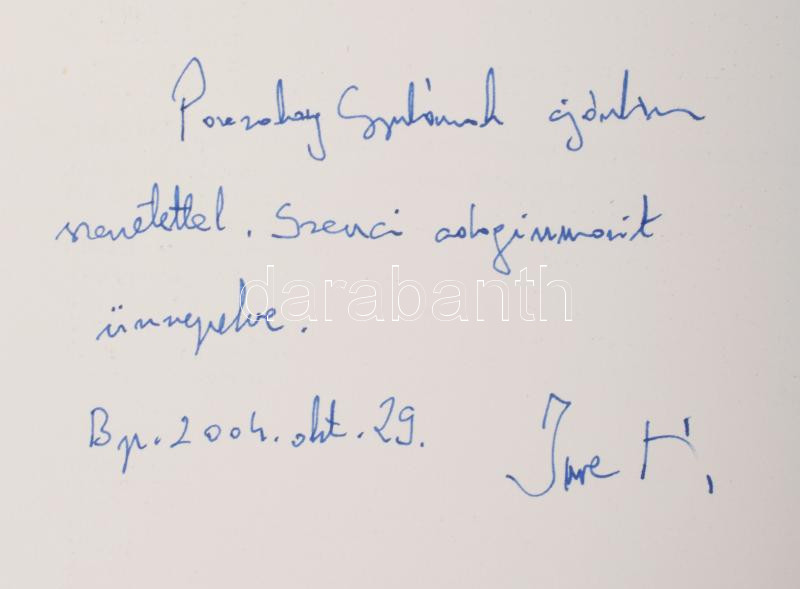 Pozsohay Gyulának ajánlom
szeretettel. Szenci
ünnepelve.
darabanth
Bp. 2004. okt. 29.
Imre K,